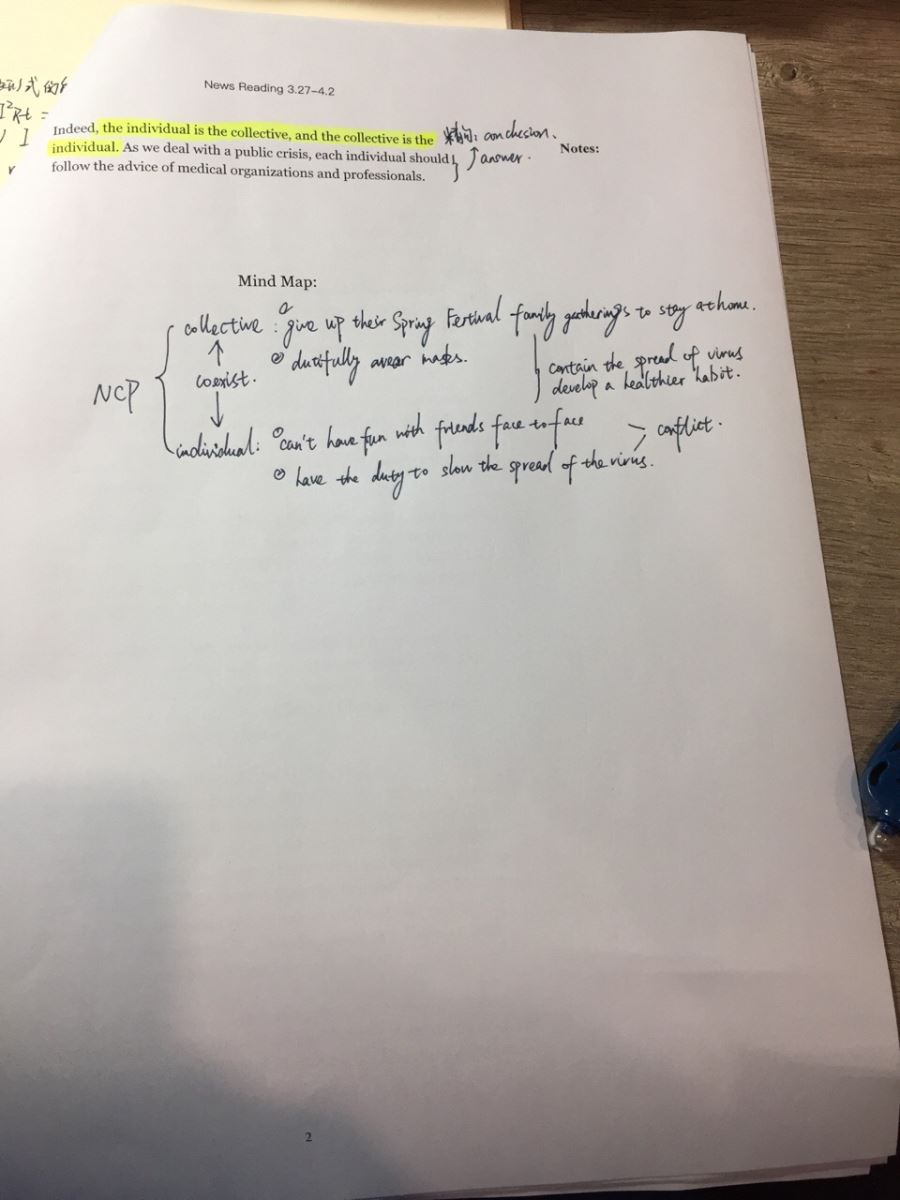 式的
News Reading 3.27–4.2
I²Rt =
Indeed, the individual is the collective, and the collective is the
conclusion.
I
individual. As we deal with a public crisis, each individual should
answer.
Notes:
follow the advice of medical organizations and professionals.
Mind Map:
collective : give up their Spring Fertival family gatherings to stay at home.
② dutifully wear masks.
contain the spread of virus
develop a healthier habit.
coexist.
NCP
individual: ① can't have fun with friends face to face
conflict.
② have the duty to slow the spread of the virus.
2